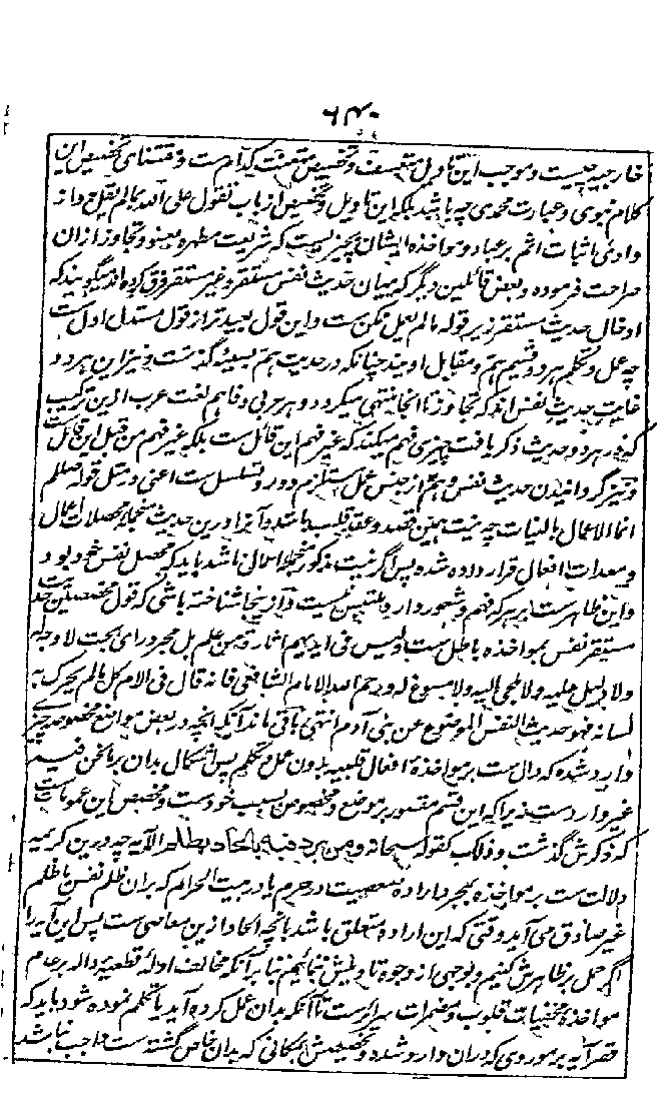 ۶۴۰
خارجیه چیست و موجب این تاویل متعسف و تخصیص متعنت کدام ست و مقتضای تخصیص این
کلام نبوی و عبارت محمدی چه باشد بلکه این تاویل و تخصیص از باب تقول علی الله بما لم یقل و از
وادی اثبات اثم بر عباد و مواخذه ایشان بچیزیست که شریعت مطهره بعفو و تجاوز ازان
صراحت فرموده و بعض قائلین دیگر که میان حدیث نفس مستقر و غیر مستقر فرق کرده اند میگویند که
ادخال حدیث مستقر زیر قوله ما لم یعمل ممکن ست و این قول بعید تر از قول مستدل اول ست
چه عمل و تکلم هر دو قسیم هم و مقابل او یند چنانکه در حدیث هم بعینه گذشت و نیز این هر دو
غایت حدیث نفس اند که تجاوز تا انجا منتهی میگردد و هر عربی و فاهم لغت عرب ازین ترکیب
که در هر دو حدیث ذکر یافت چیزی فهم میکند که غیر فهم این قائل ست بلکه غیر فهم من قبل این قائل ست
و نیز گردانیدن حدیث نفس و هم از جنس عمل مستلزم دور و تسلسل ست اعنی در مثل قوله صلعم
انما الاعمال بالنیات چه نیت همین قصد و عقد قلب باشد و آنرا درین حدیث منجمله محصلات اعمال
و معدات افعال قرار داده شده پس اگر نیت مذکور منجمله اعمال باشد باید که محصل نفس خود بود
و این ظاهر ست بر هر که فهم و شعور دارد و ملتبس نیست و ازینجا شناخته باشی که قول مخصصین حدیث
مستقر نفس بمواخذه باطل ست و لیس فی ایدیهم اثارة من علم بل مجرد رای بحت لا وجه له
ولا دلیل علیه ولا ملجی الیه ولا مسوغ له و رحم الله الامام الشافعی فانه قال فی الام کل ما لم یحرک به
لسانه فهو حدیث النفس الموضوع عن بنی آدم انتهی باقی ماند آنکه انچه در بعض مواضع مخصوصه چیزے
وارد شده که دال ست بر مواخذهٔ افعال قلبیه بدون عمل و تکلم پس اشکال بدان بر ما نحن فیه
غیر وارد ست زیرا که این قسم مقصور بر موضع و مخصوص بسبب خود ست و مخصص این عمومات ست
که ذکرش گذشت و ذلک کقوله سبحانه ومن یرد فیه بالحاد بظلم الآیه چه درین کریمه
دلالت ست بر مواخذه بمجرد ارادهٔ معصیت در حرم یا در بیت الحرام که بران ظلم نفس یا ظلم
غیر صادق می آید وقتی که این اراده متعلق باشد بانچه الحاد ازین معاصی ست پس این آیه را
اگر حمل بر ظاهرش کنیم و بوجهی از وجوه تاویلش ننمائیم بنا بر آنکه مخالف ادلهٔ قطعیهٔ داله بر عدم
مواخذه بمخبیات قلوب و مضمرات سرائر ست تا آنکه بدان عمل کرده آید یا تکلم نموده شود باید که
قصر آیه بر موردی که دران وارد شده و تخصیصش بمکانی که بدان خاص گشته ست واجب باشد